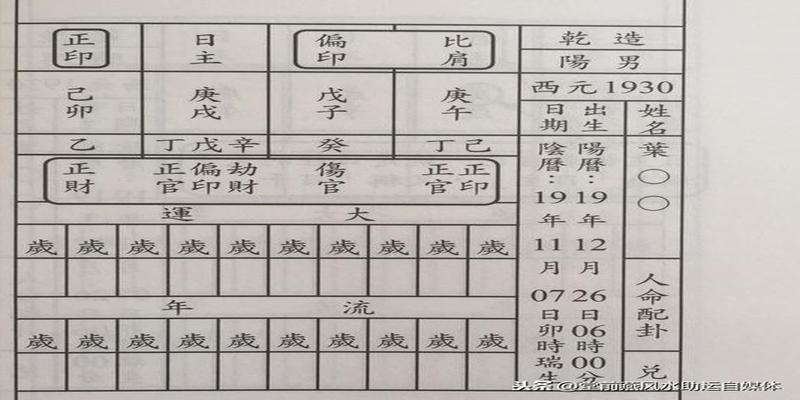 乾造
陽男
西元1930
姓名
葉○○
人命配卦
兌
出生日期
陽曆:19年12月26日06時00分
陰曆:19年11月07日卯時瑞生
比肩
偏印
日主
正印
庚午
戊子
庚戌
己卯
己丁
癸
辛戊丁
乙
正印
正官
傷官
劫財
偏印
正官
正財
大運
歲 歲 歲 歲 歲 歲 歲 歲 歲 歲
流年
歲 歲 歲 歲 歲 歲 歲 歲 歲 歲
头条 风水助运自媒体